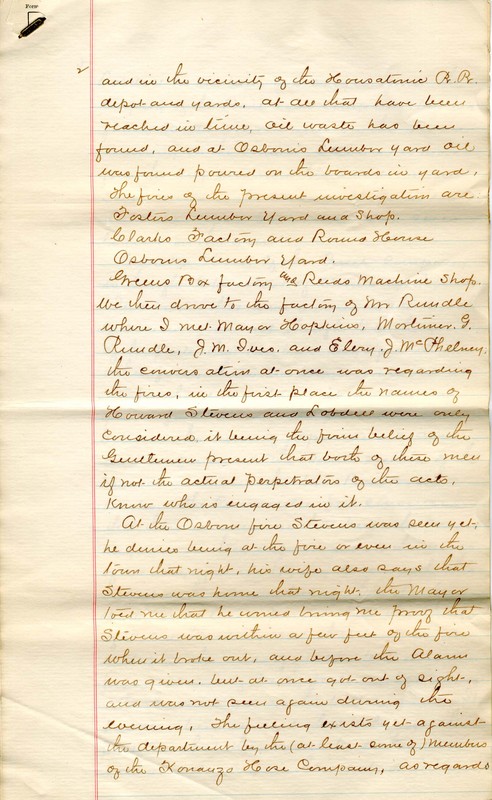 2
and in the vicinity of the Housatonic R.R.
depot and yards. at all that have been
reached in time, oil waste has been
found, and at Osborns Lumber yard oil
was found poured on the boards in yard.
The fires of the present investigation are
Fosters Lumber Yard and Shop.
Clarks Factory and Round House
Osborns Lumber Yard.
Greens Box factory and Reeds Machine Shop.
We then drove to the factory of Mr Rundle
where I met Mayor Hopkins, Mortimer. G.
Rundle, J. M. Ives. and Elery. J. McPhelney.
the conversation at once was regarding
the fires, in the first place the names of
Howard Stevens and Lobdell were only
considered it being the firm belief of the
Gentlemen present that both of these men
if not the actual perpetrators of the acts.
Know who is engaged in it.
At the Osborn fire Stevens was seen yet,
he denies being at the fire or even in the
town that night, his wife also says that
Stevens was home that night. the Mayor
told me that he would bring me proof that
Stevens was within a few feet of the fire
when it broke out, and before the Alarm
was given. but at once got out of sight,
and was not seen again during the
evening. The feeling exists yet against
the department by the (at least some of) Members
of the Konanzo Hose Company, as regards